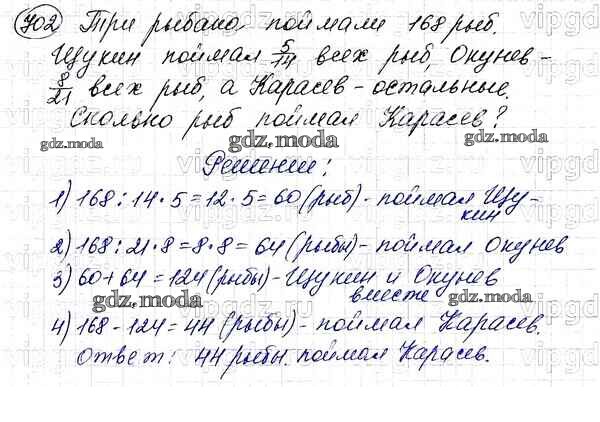 702 Три рыбака поймали 168 рыб.
Щукин поймал 5/14 всех рыб, Окунев -
8/21 всех рыб, а Карасев - остальные.
Сколько рыб поймал Карасев?
gdz.moda gdz.moda gdz.moda
Решение:
1) 168:14·5=12·5=60 (рыб) - поймал Щу-
кин
2) 168:21·8=8·8=64 (рыбы) - поймал Окунев
3) 60+64=124 (рыбы) - Щукин и Окунев
вместе
gdz.moda gdz.moda gdz.moda
4) 168-124=44 (рыбы) - поймал Карасев.
Ответ: 44 рыбы. поймал Карасев.